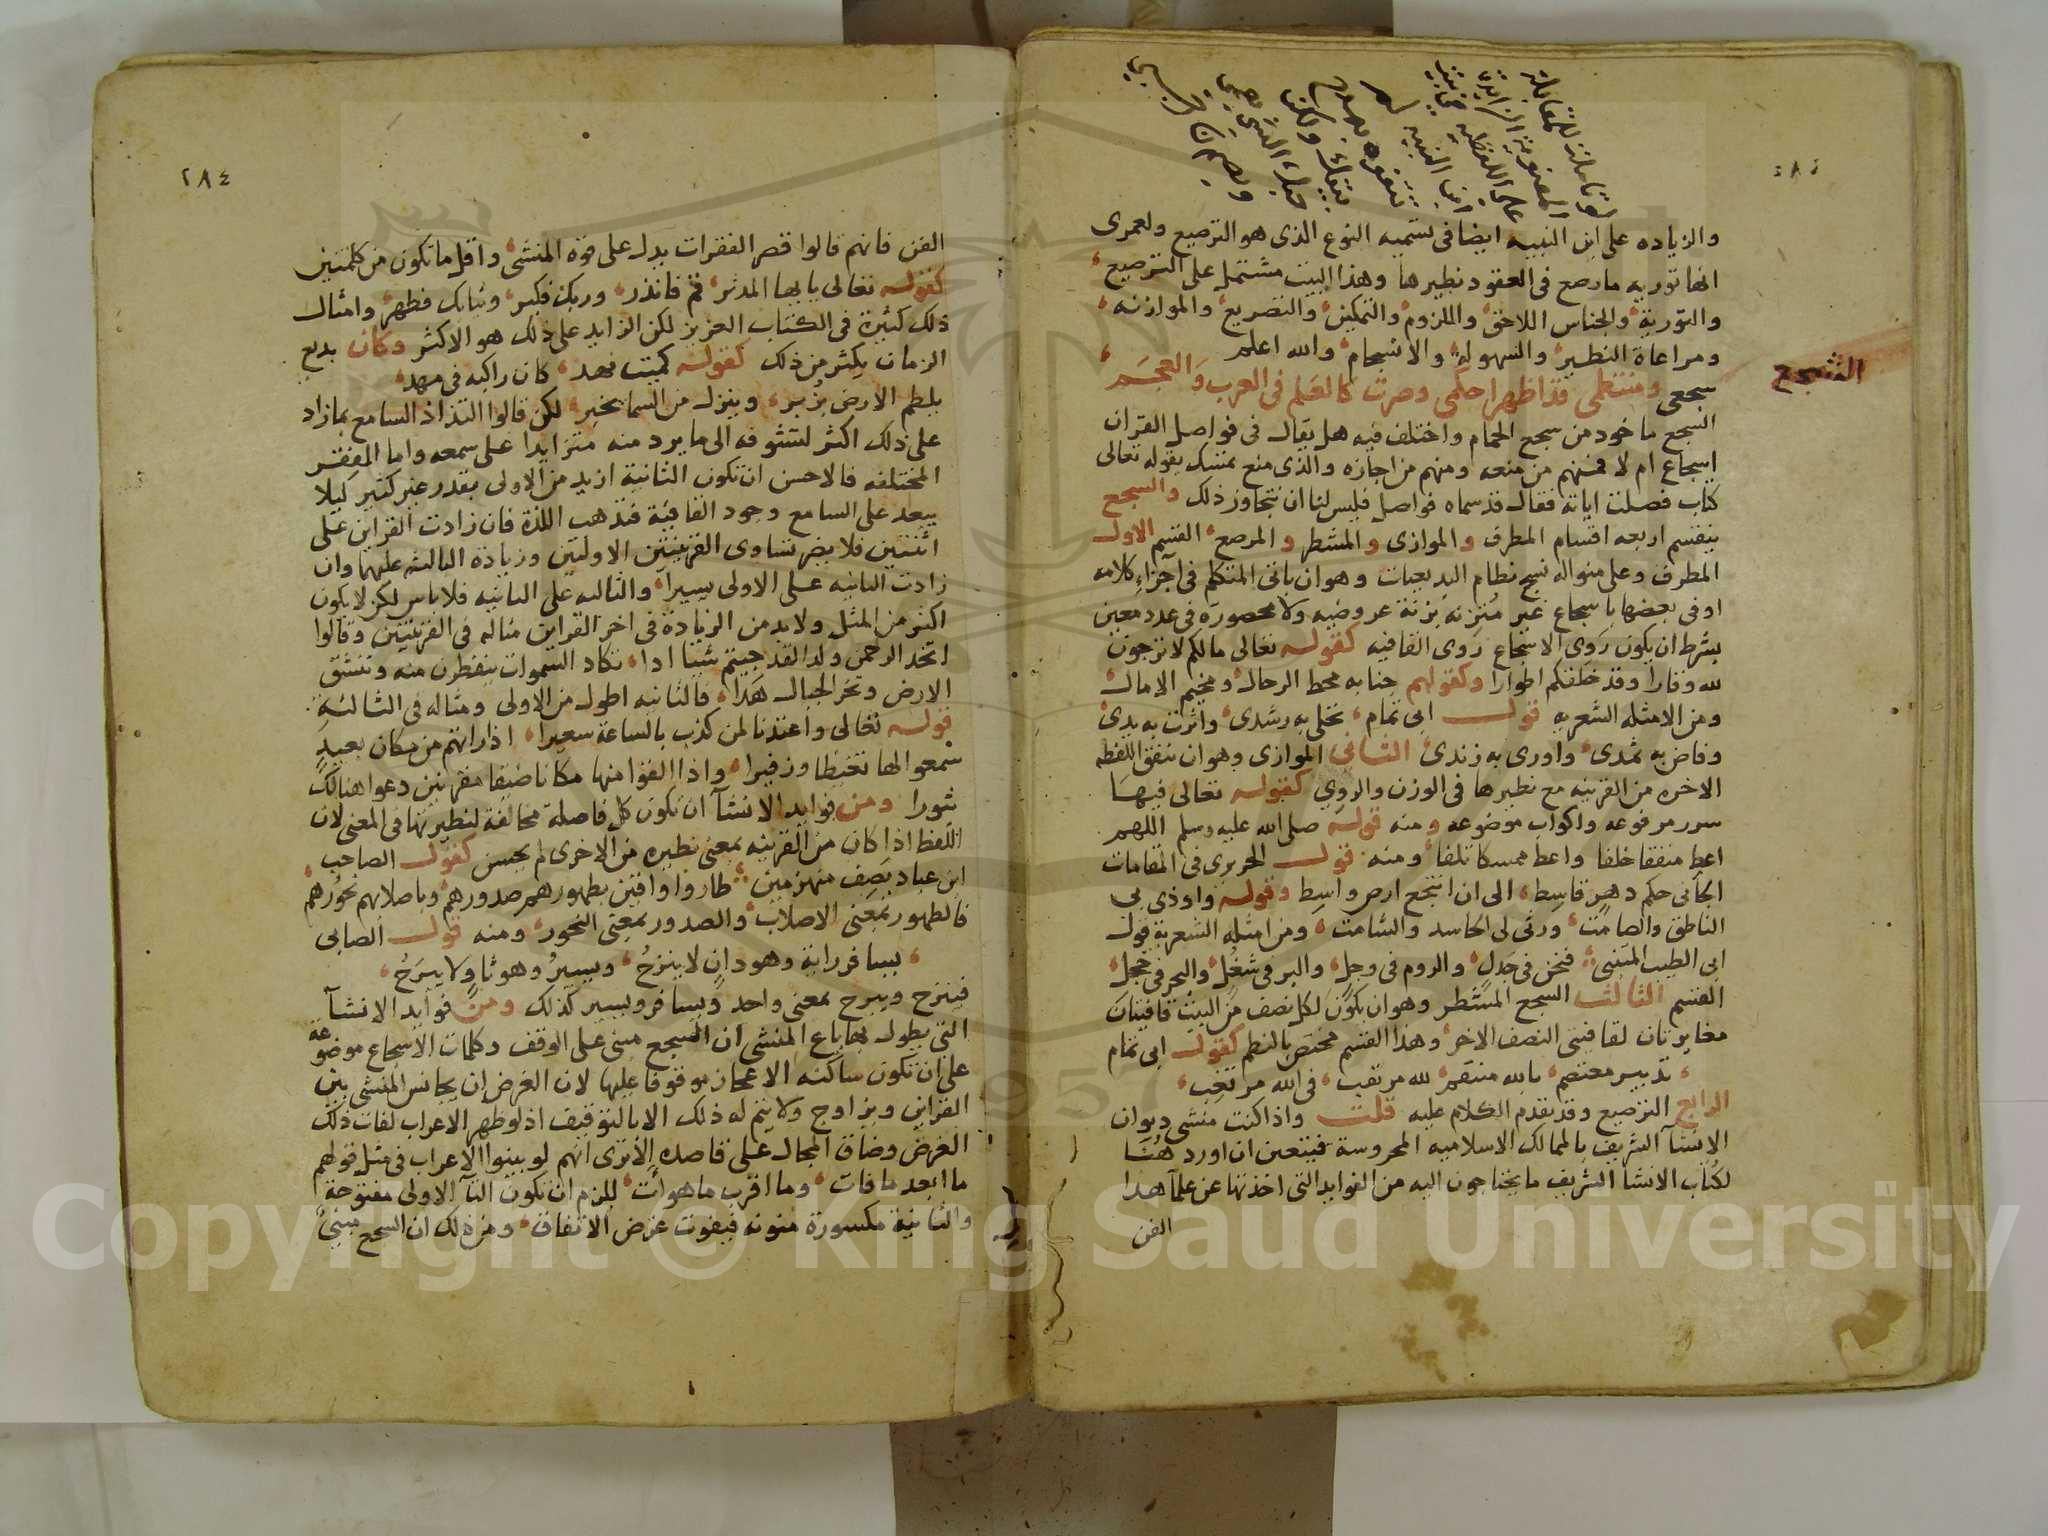 والزياده على ابن النبيه ايضا فى تسميه النوع الذى هو الترصيع ولعمرى
انها توريه ما رصع فى العقود نظيرها وهذا البيت مشتمل على الترصيع
والتورية والجناس اللاحق واللزوم والتمكين والتصريع والموازنه
ومراعاة النظير والسهولة والانسجام والله اعلم
السجع
سجعى ومنتظمى قد اظهرا حكمى وصرت كالعلم فى العرب والعجم
السجع ماخوذ من سجع الحمام واختلف فيه هل يقال فى فواصل القران
اسجاع ام لا فمنهم من منعه ومنهم من اجازه والذى منع تمسك بقوله تعالى
كتاب فصلت اياته فقال قد سماه فواصل فليس لنا ان نتجاوز ذلك والسجع
ينقسم اربعه اقسام المطرف والموازى والمشطر والمرصع القسم الاول
المطرف وعلى منواله نسج نظام البديعيات وهو ان ياتى المتكلم فى اجزاء كلامه
او فى بعضها باسجاع غير متزنه بزنة عروضيه ولا محصوره فى عدد معين
بشرط ان يكون روى الاسجاع روى القافيه كقوله تعالى مالكم لا ترجون
لله وقارا وقد خلقكم اطوارا وكقولهم جنابه محط الرحال ومخيم الامال
ومن الامثله الشعريه قول ابى تمام تجلى به رشدى واثرت به يدى
وفاض به ثمدى واورى به زندى الثانى الموازى وهو ان تتفق اللفظه
الاخره من القرينه مع نظيرها فى الوزن والروى كقوله تعالى فيها
سرر مرفوعه واكواب موضوعه ومنه قوله صلى الله عليه وسلم اللهم
اعط منفقا خلفا واعط ممسكا تلفا ومنه قول الحريرى فى المقامات
الجانى حكم دهر قاسط الى ان انتجع ارض واسط وقوله واودى بى
الناطق والصامت ورثى لى الحاسد والشامت ومن امثله الشعرية قول
ابى الطيب المتنبى فنحن فى جدل والروم فى وجل والبر فى شغل والبحر فى خجل
القسم الثالث السجع المشطر وهو ان يكون لكل نصف من البيت قافيتان
مغايرتان لقافيتى النصف الاخر وهذا القسم مختص بالنظم كقول ابى تمام
تدبير معتصم بالله منتقم لله مرتقب فى الله مرتغب
الرابع الترصيع وقد تقدم الكلام عليه قلت واذا كنت منشى ديوان
الانشآ الشريف بالممالك الاسلاميه المحروسة فيتعين ان اورد هنا
لكتاب الانشا الشريف ما يحتاجون اليه من الفوايد التى اخذتها عن علمآ هذا
الفن
٢٨٤
الفن فانهم قالوا قصر الفقرات يدل على قوة المنشى واقل ما تكون من كلمتين
كقوله تعالى يا ايها المدثر قم فانذر وربك فكبر وثيابك فطهر وامثال
ذلك كثيرة فى الكتاب العزيز لكن الزايد على ذلك هو الاكثر وكان بديع
الزمان يكثر من ذلك كقوله كميت نهد كان راكبه فى مهد
يلطم الارض بزبر وينزل من السما بخبر لكن قالوا التذاذ السامع بما زاد
على ذلك اكثر لتشوفه الى ما يرد منه متزايدا على سمعه واما الفقر
المختلفه فالاحسن ان تكون الثانية ازيد من الاولى بقدر غير كثير ليلا
يبعد على السامع وجود القافية فتذهب اللذة فان زادت القراين على
اثنتين فلا يضر تساوى القرينتين الاولتين وزيادة الثالثه عليهما وان
زادت الثانيه على الاولى يسيرا والثالثه على الثانيه فلا باس لكن لا يكون
اكثر من المثل ولا بد من الزيادة فى اخر القراين مثاله فى القرينتين وقالوا
اتخذ الرحمن ولدا لقد جيتم شيا ادا تكاد السموات ينفطرن منه وتنشق
الارض وتخر الجبال هدا فالثانيه اطول من الاولى ومثاله فى الثالثه
قوله تعالى واعتدنا لمن كذب بالساعة سعيرا اذا راتهم من مكان بعيد
سمعوا لها تغيظا وزفيرا واذا القوا منها مكانا ضيقا مقرنين دعوا هنالك
ثبورا ومن فوايد الانشآ ان تكون كل فاصلة مخالفة لنظيرتها فى المعنى لان
اللفظ اذا كان من القرينه بمعنى نظيره من الاخرى لم يحسن كقول الصاحب
ابن عباد يصف منهزمين طاروا واقين بظهورهم صدورهم وباصلابهم نحورهم
فالظهور بمعنى الاصلاب والصدور بمعنى النحور ومنه قول الصابى
يسافر رايه وهو دان لا ينزح ويسير وهو ثاو لا يبرح
فينزح ويبرح بمعنى واحد ويسافر ويسير كذلك ومن فوايد الانشآ
التى يطول بها باع المنشى ان السجع مبنى على الوقف وكلمات الاسجاع موضوعة
على ان تكون ساكنه الاعجاز موقوفا عليها لان الغرض ان يجانس المنشى بين
القراين ويزاوج ولا يتم له ذلك الا بالتوقيف اذ لو ظهر الاعراب لفات ذلك
الغرض وضاق المجال على قاصده الا ترى انهم لو بينوا الاعراب فى مثل قولهم
ما ابعد ما فات وما اقرب ما هو ات للزم ان تكون التآ الاولى مفتوحة
والثانية مكسورة منونه فيفوت غرض الاتفاق ومن ذلك ان السجع مبنى
Copyright © King Saud University
1957